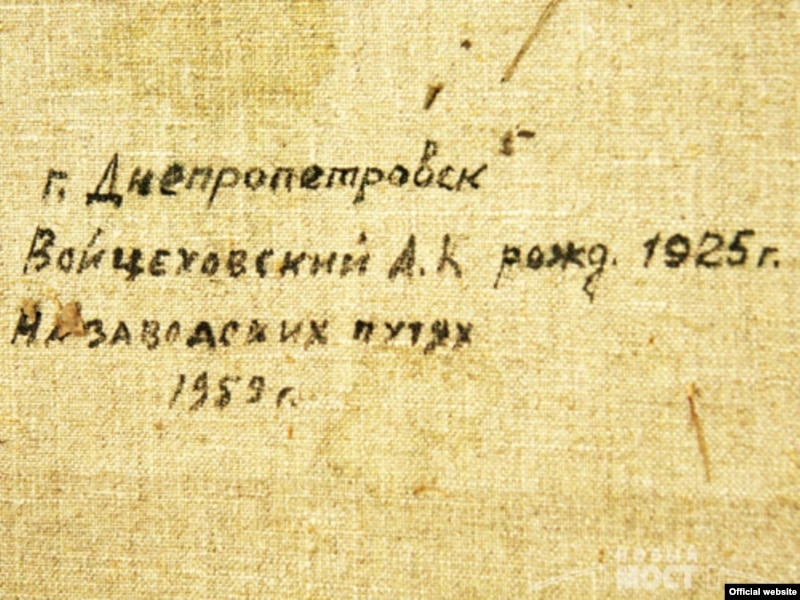 г. Днепропетровск
Войцеховский А.К рожд. 1925 г.
На заводских путях
1959 г.
НОВЫЙ
МОСТ
Official website